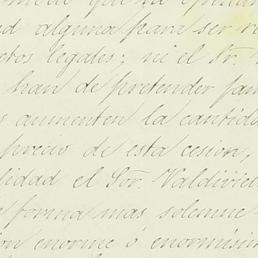 ad alguna para ser
legales; ni el Sr.
han de pretender jam
s aumenten la cantida
precio de esta cesion,
lidad el Sor. Valdivie
forma mas solemne
ion enorme ó enormísim